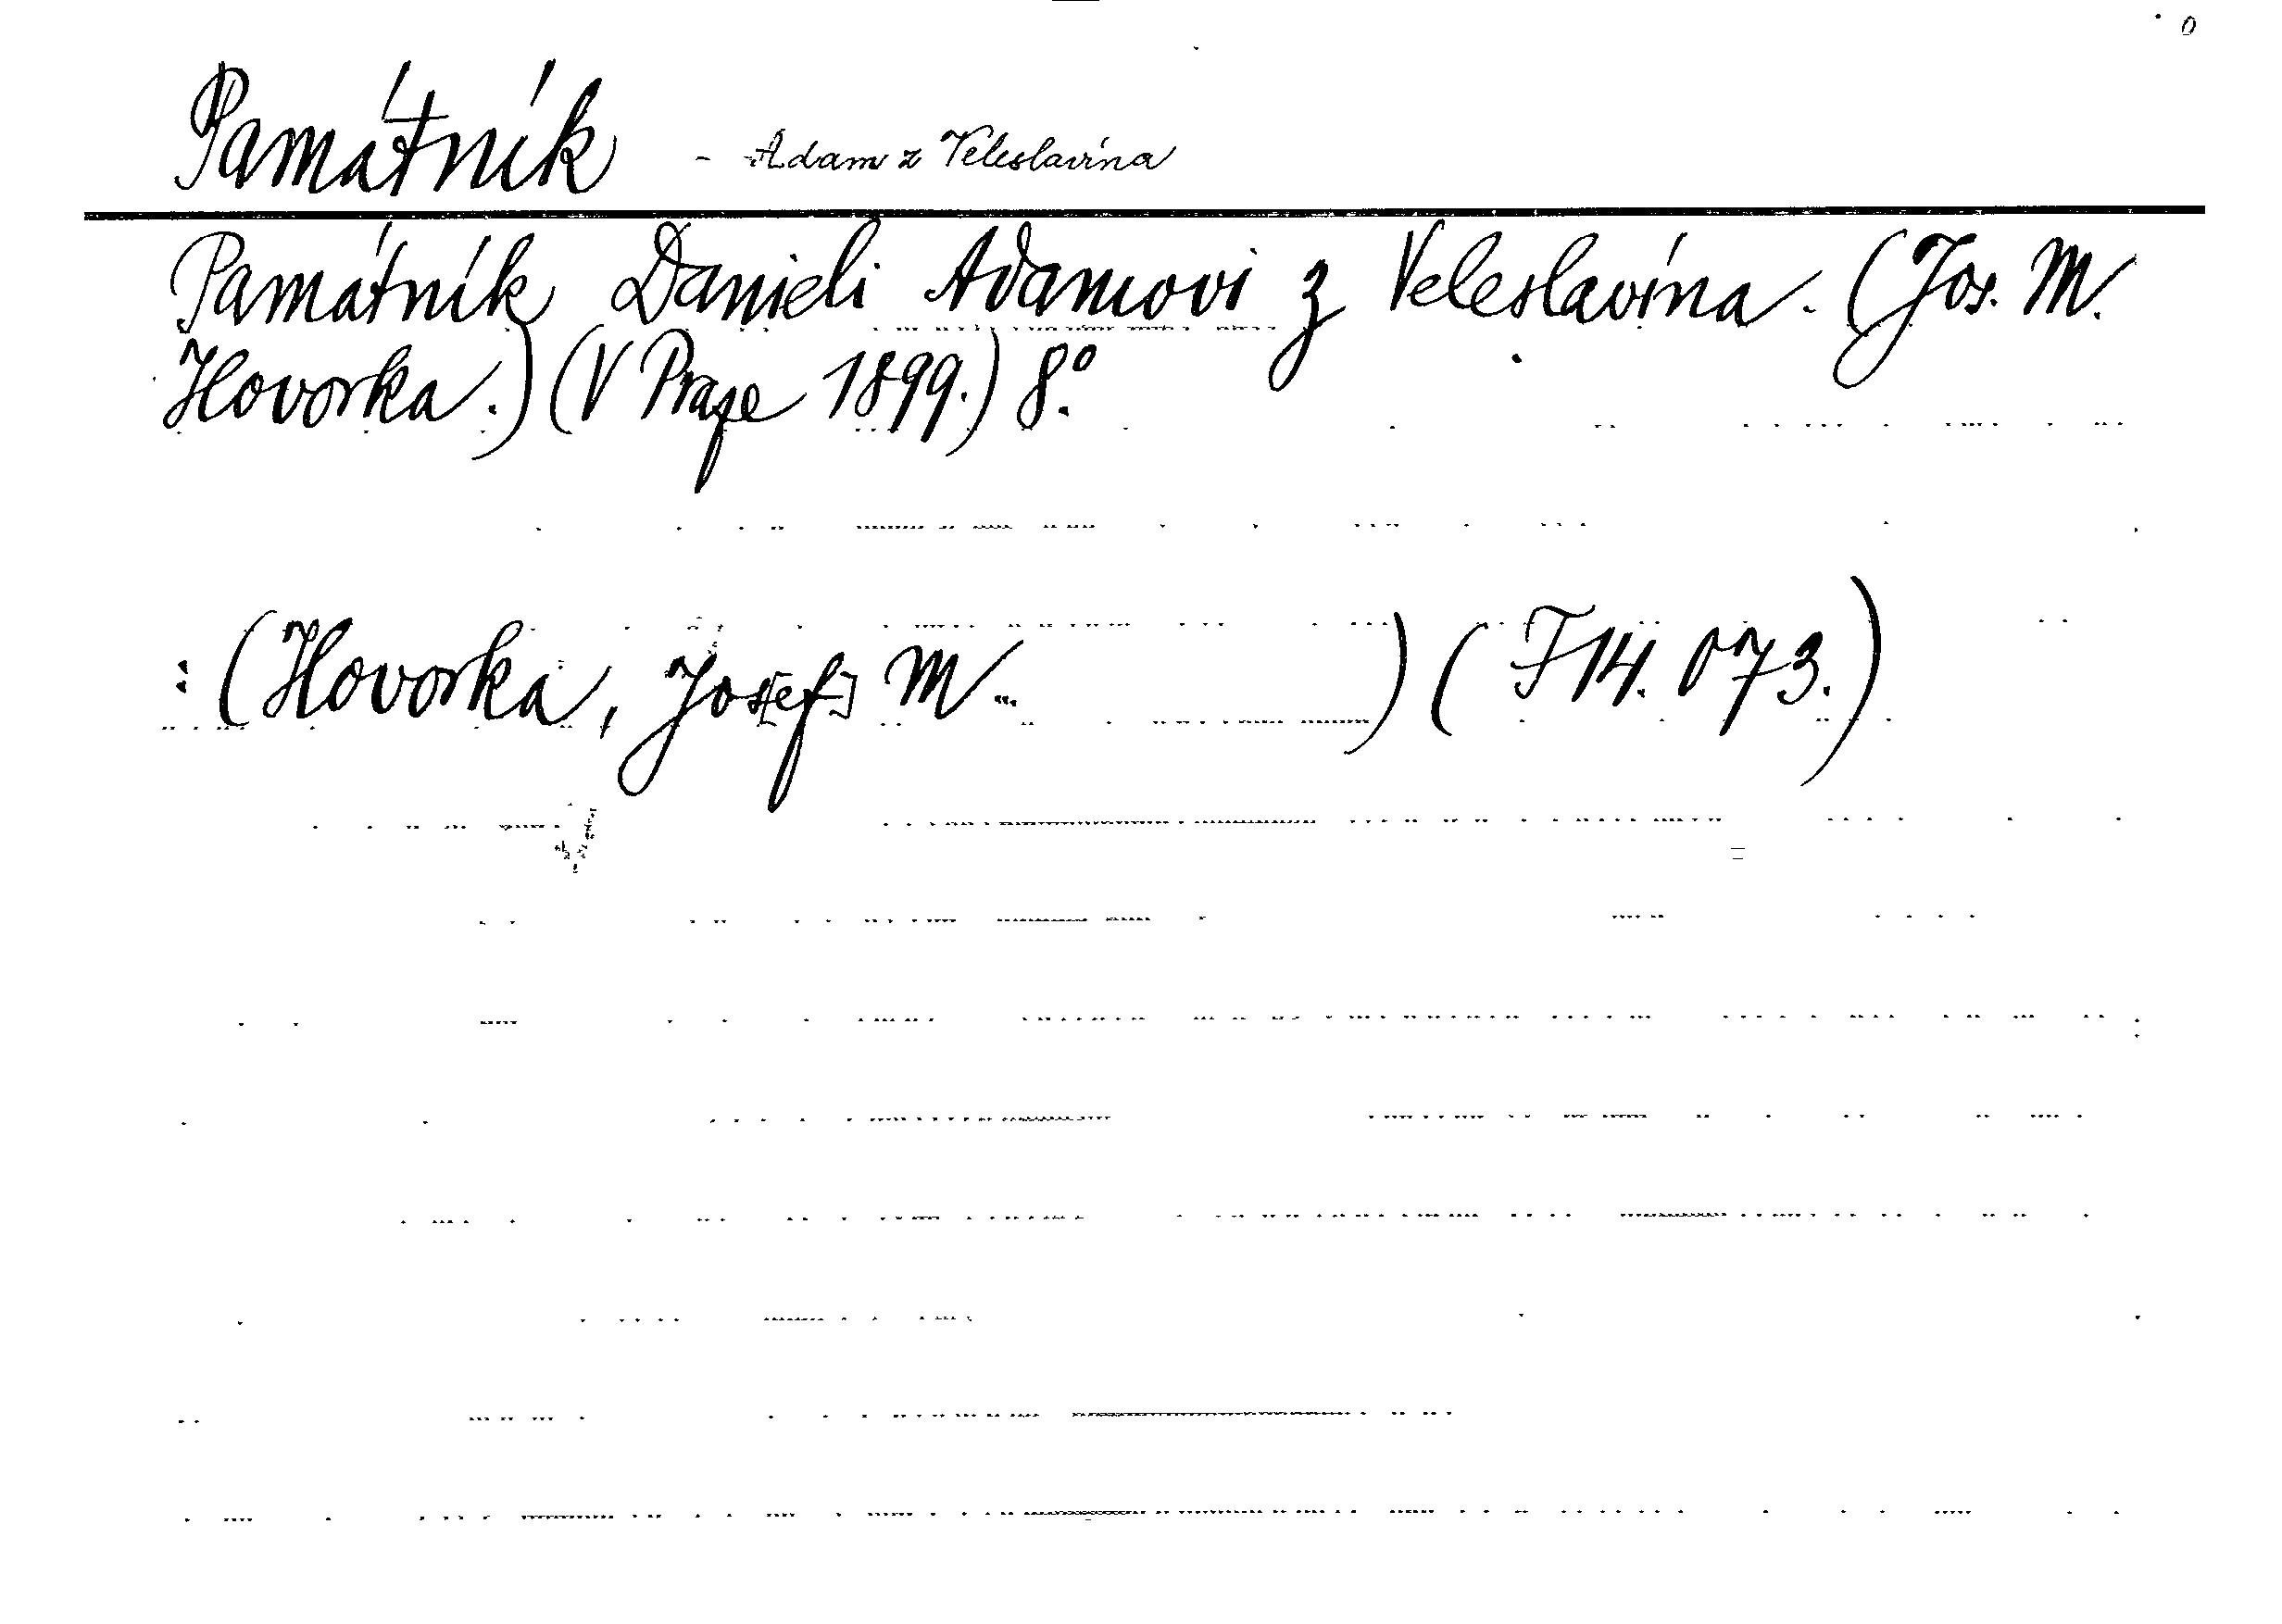 Památník - Adam z Veleslavína
Památník Danieli Adamovi z Veleslavína. (Jos. M.
Hovorka.) (V Praze 1899.) 8º.
: (Hovorka, Jos[ef] M..) (F 14.073.)